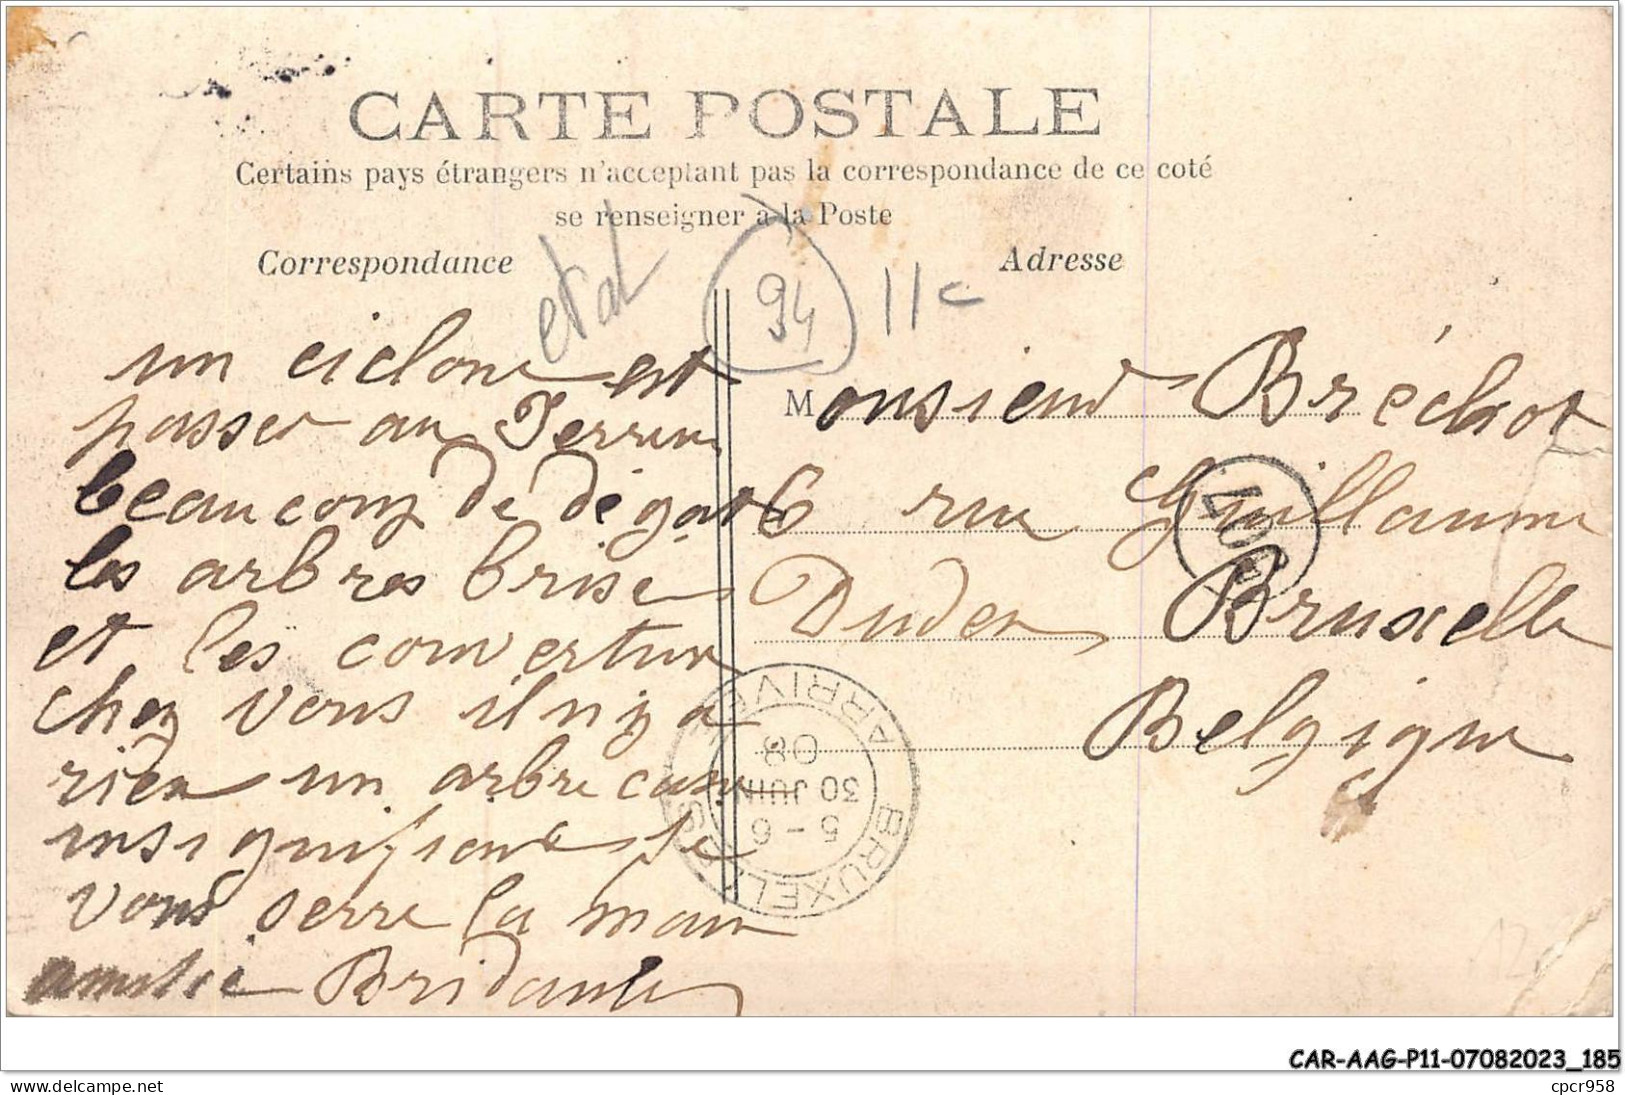 CARTE POSTALE
Certains pays étrangers n'acceptent pas la correspondance de ce coté
se renseigner à la Poste
Correspondance
Adresse
94
11c
un ciclone est
passer au Perreux
beaucoup de dégats
les arbres brises
et les couvertur
chez vous il n'y a
rien un arbre casse
insignifiant je
vous serre la main
amitié
Monsieur Bréchot
6 rue Guillaume
Duden Bruxelle
Belgique
BRUXELLES ARRIVEE
5-6
30 JUIN
08
CAR-AAG-P11-07082023_185
cpcr958